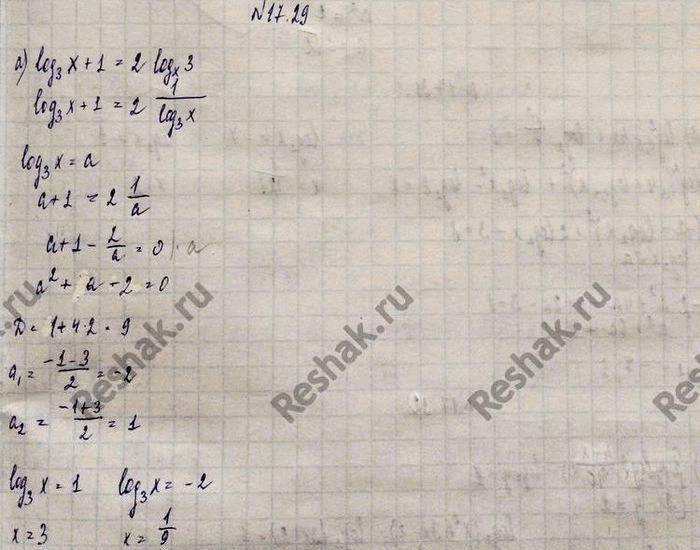 №17.29
а) log₃ x + 1 = 2 logₓ 3
log₃ x + 1 = 2 1/log₃ x
log₃ x = a
a + 1 = 2 1/a
a + 1 - 2/a = 0 | · a
a² + a - 2 = 0
D = 1 + 4 · 2 = 9
a₁ = (-1-3)/2 = -2
a₂ = (-1+3)/2 = 1
log₃ x = 1 log₃ x = -2
x = 3 x = 1/9
Reshak.ru
Reshak.ru
Reshak.ru
Reshak.ru